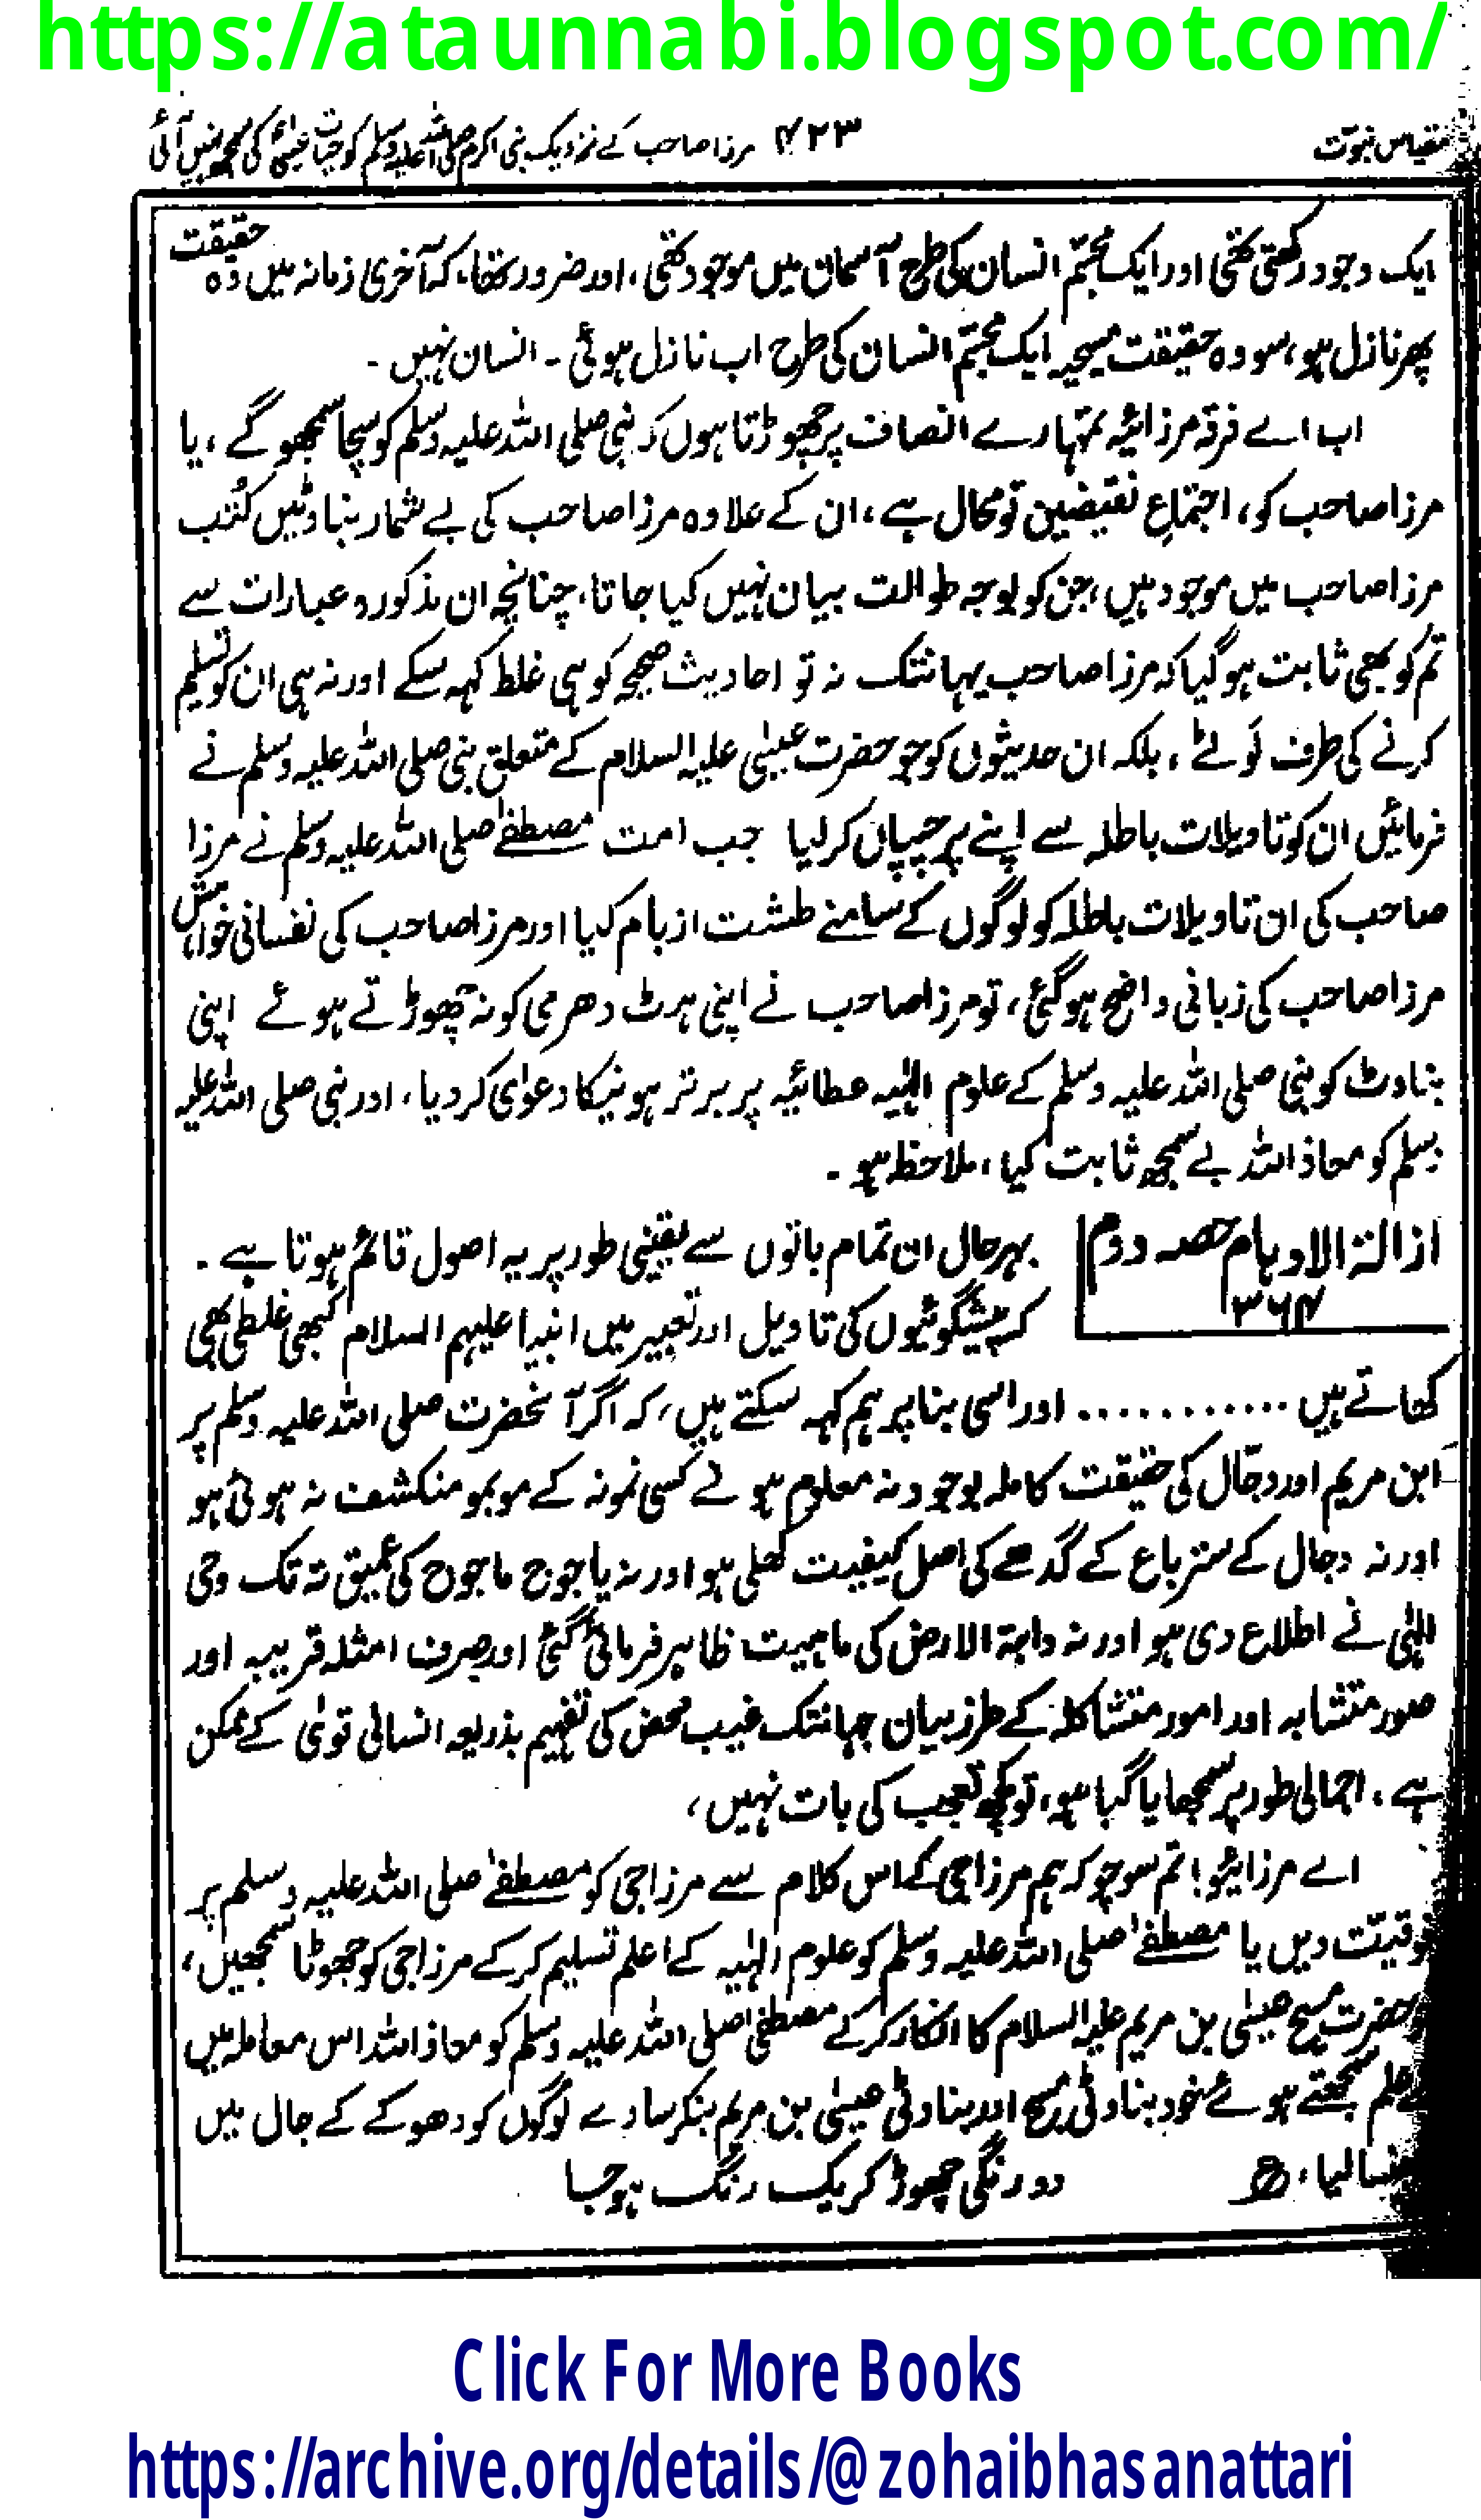 https://ataunnabi.blogspot.com/
مقیاس نبوت ۷۲۳ مرزا صاحب کے نزدیک نبی اکرم صلی اللہ علیہ وسلم کو حیات عیسیٰ کی سمجھ نہیں آئی
ایک وجود رکھتی تھی اور ایک مجسّم انسان کی طرح آسمان میں موجود تھی، اور ضرور تھا، کہ آخری زمانہ میں وہ حقیقت
پھر نازل ہو، سو وہ حقیقت مسیحیہ ایک مجسّم انسان کی طرح اب نازل ہوئی ۔ انسان نہیں ۔
اب اے فرقہ مرزائیہ تمہارے انصاف پر چھوڑتا ہوں کہ نبی صلی اللہ علیہ وسلم کو سچا سمجھو گے ، یا
مرزا صاحب کو، اجتماعِ نقیضین تو محال ہے ، ان کے علاوہ مرزا صاحب کی بے شمار بناوٹیں کتُب
مرزا صاحب میں موجود ہیں ، جن کو بوجہ طوالت بیان نہیں کیا جاتا، چنانچہ ان مذکورہ عبارات سے
تم کو بھی ثابت ہو گیا کہ مرزا صاحب یہانتک نہ تو احادیث صحیحہ کو ہی غلط کہہ سکے اور نہ ہی ان کو تسلیم
کرنے کی طرف لَوٹے ، بلکہ ان حدیثوں کو جو حضرت عیسیٰ علیہ السلام کے متعلق نبی صلی اللہ علیہ وسلم نے
فرمائیں ان کو تاویلات باطلہ سے اپنے پر چسپاں کر لیا جب امت مصطفےٰ صلی اللہ علیہ وسلم نے مرزا
صاحب کی ان تاویلات باطلہ کو لوگوں کے سامنے طشت از بام کیا اور مرزا صاحب کی نفسانی خواہش
مرزا صاحب کی زبانی واضح ہو گئی ، تو مرزا صاحب نے اپنی ہرٹ دھرمی کو نہ چھوڑتے ہوئے اپنی
بناوٹ کو نبی صلی اللہ علیہ وسلم کے علوم الہٰیہ عطائیہ پر برتر ہونیکا دعوٰی کر دیا ، اور نبی صلی اللہ علیہ
وسلم کو معاذ اللہ بے سمجھ ثابت کیا ، ملاحظہ ہو ۔
ازالۃ الاوہام حصہ دوم بہرحال ان تمام باتوں سے یقینی طور پر یہ اصول قائم ہوتا ہے ۔
۳۶۴ کہ پیشگوئیوں کی تاویل اور تعبیر میں انبیا علیہم السلام کبھی غلطی بھی
کھاتے ہیں ........... اور اسی بنا پر ہم کہہ سکتے ہیں ، کہ اگر آنحضرت صلی اللہ علیہ وسلم پر
ابن مریم اور دجّال کی حقیقت کاملہ بوجود نہ معلوم ہونے کسی نمونہ کے موبمو منکشف نہ ہوئی ہو
اور نہ دجال کے ستر باع کے گدھے کی اصل کیفیت کھلی ہو اور نہ یاجوج ماجوج کی عمیق تہ تک وحی
الہٰی نے اطلاع دی ہو اور نہ دابۃ الارض کی ماہیت ظاہر فرمائی گئی اور صرف امثلہ قریبہ اور
صور متشابہ اور امور متشاکلہ کے طرز بیان جہانتک غیب محض کی تفہیم بذریعہ انسانی قویٰ کے ممکن
ہے ، اجمالی طور پر سمجھایا گیا ہو ، تو کچھ تعجب کی بات نہیں ،
اے مرزائیو! تم سوچو کہ ہم مرزا جی کے اس کلام سے مرزا جی کو مصطفےٰ صلی اللہ علیہ وسلم پر
فوقیّت دیں یا مصطفےٰ صلی اللہ علیہ وسلم کو علوم الہٰیہ کے اعلم تسلیم کر کے مرزا جی کو جھوٹا سمجھیں ،
حضرت مسیح عیسٰی بن مریم علیہ السلام کا انکار کر کے مصطفیٰ صلی اللہ علیہ وسلم کو معاذ اللہ اس معاملہ میں
علم سمجھتے ہوئے خود بناوٹی مسیح اور بناوٹی عیسیٰ بن مریم بنکر سادے لوگوں کو دھوکے کے جال میں
لیا ، ع دو رنگی چھوڑ کر یک رنگ ہو جا
Click For More Books
https://archive.org/details/@zohaibhasanattari